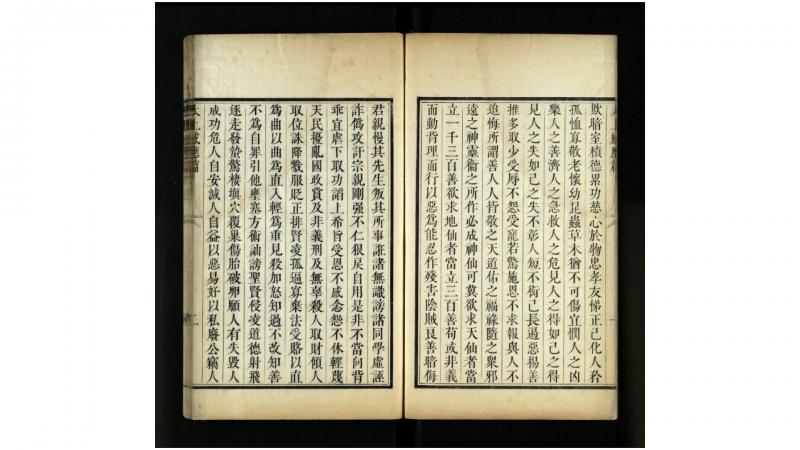 太上感應篇
欺暗室積德累功慈心於物忠孝友悌正己化人矜
孤恤寡敬老懷幼昆蟲草木猶不可傷宜憫人之凶
樂人之善濟人之急救人之危見人之得如己之得
見人之失如己之失不彰人短不衒己長遏惡揚善
推多取少受辱不怨受寵若驚施恩不求報與人不
追悔所謂善人人皆敬之天道佑之福祿隨之眾邪
遠之神靈衞之所作必成神仙可冀欲求天仙者當
立一千三百善欲求地仙者當立三百善苟或非義
而動背理而行以惡爲能忍作殘害陰賊良善暗侮
君親慢其先生叛其所事誑諸無識謗諸同學虛誣
詐僞攻訐宗親剛強不仁狠戾自用是非不當向背
乖宜虐下取功諂上希旨受恩不感念怨不休輕蔑
天民擾亂國政賞及非義刑及無辜殺人取財傾人
取位誅降戮服貶正排賢凌孤逼寡棄法受賂以直
爲曲以曲爲直入輕爲重見殺加怒知過不改知善
不爲自罪引他壅塞方術訕謗聖賢侵凌道德射飛
逐走發蟄驚棲填穴覆巢傷胎破卵願人有失毀人
成功危人自安減人自益以惡易好以私廢公竊人
太上感應篇
二